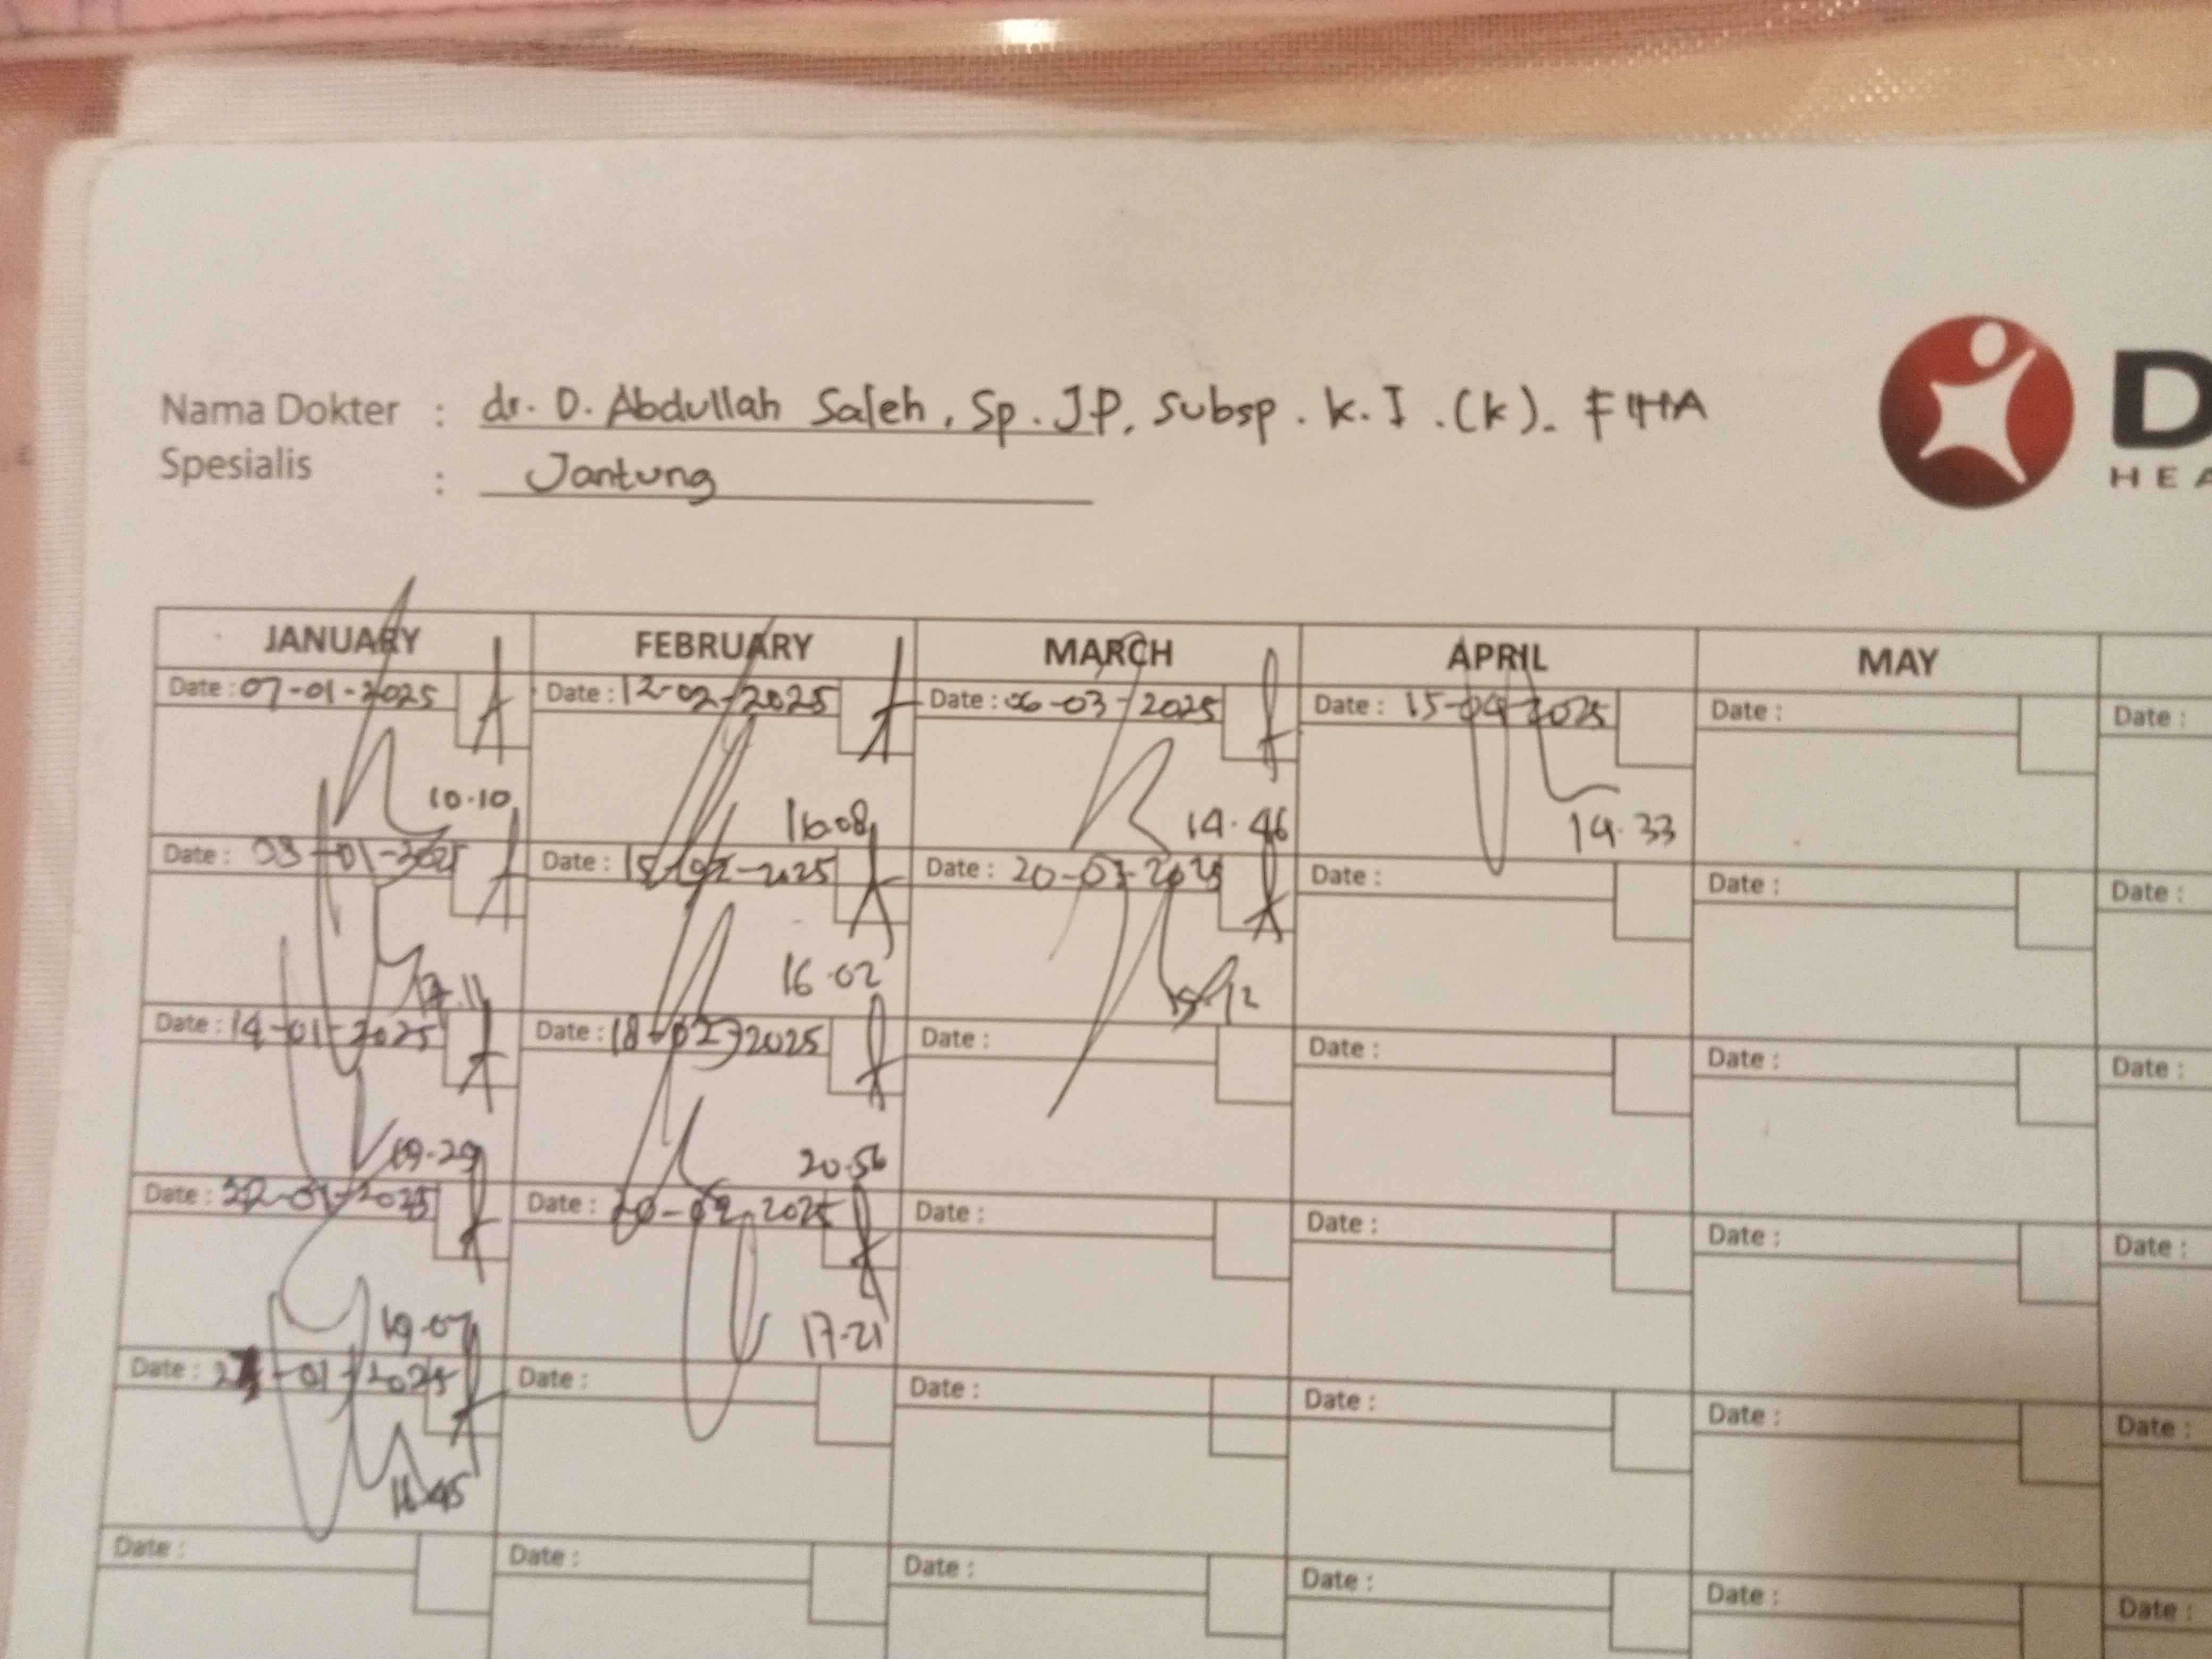 Nama Dokter : dr. D. Abdullah Saleh, Sp. JP, Subsp. K.I.(K). FIHA
Spesialis : Jantung
D
HEA
JANUARY FEBRUARY MARCH APRIL MAY
Date : 07-01-2025 Date : 12-02-2025 Date : 06-03-2025 Date : 15-04-2025 Date : Date :
10.10 16.08 14.46 14.33
Date : 03-01-2025 Date : 15-02-2025 Date : 20-03-2025 Date : Date : Date :
16.02 15.12
Date : 14-01-2025 Date : 18-02-2025 Date : Date : Date : Date :
19.29 20.56
Date : 22-01-2025 Date : 20-02-2025 Date : Date : Date : Date :
19.07 17.21
Date : -01-2025 Date : Date : Date : Date : Date :
Date : Date : Date : Date : Date : Date :